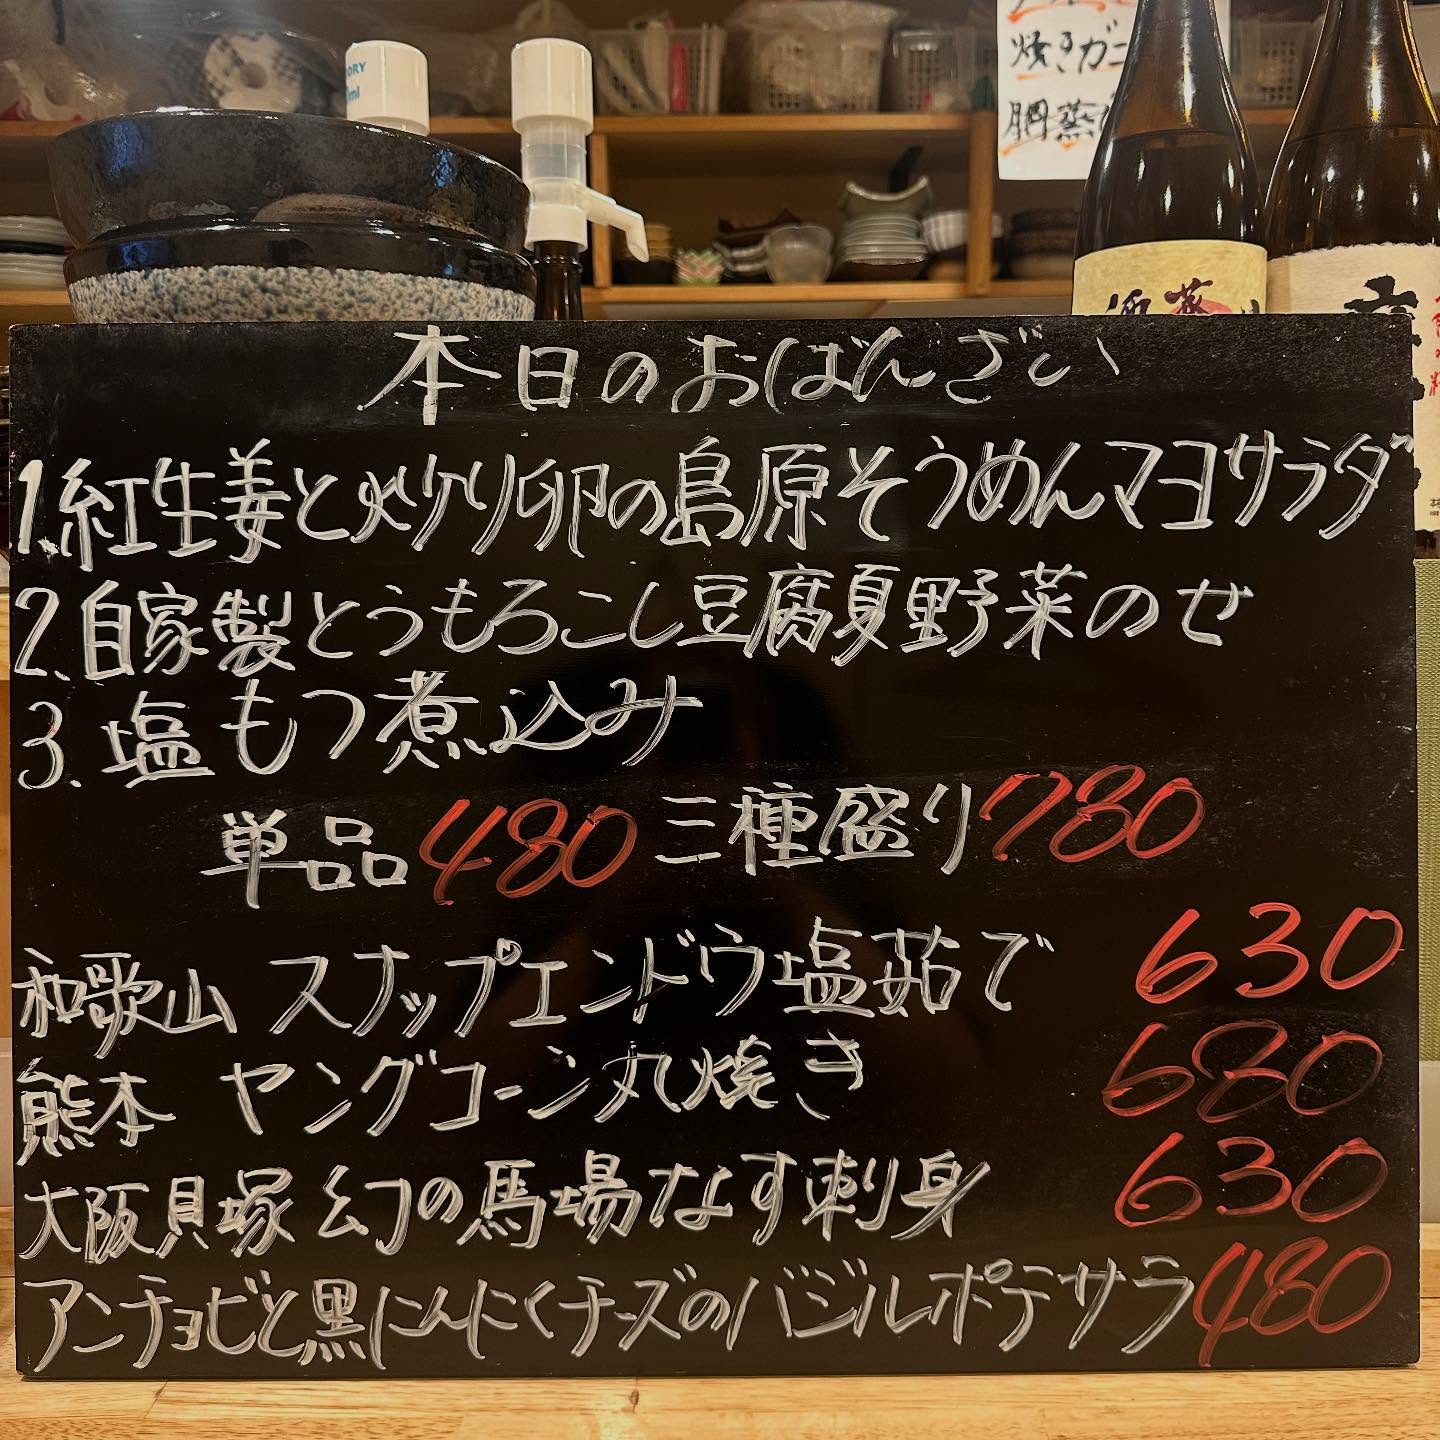 焼きガニ
胴蒸
本日のおばんざい
1.紅生姜と炒り卵の島原そうめんマヨサラダ
2.自家製とうもろこし豆腐夏野菜のせ
3.塩もつ煮込み
単品480 三種盛り780
和歌山 スナップエンドウ塩茹で 630
熊本 ヤングコーン丸焼き 680
大阪貝塚 幻の馬場なす刺身 630
アンチョビと黒にんにくチーズのバジルポテサラ 480